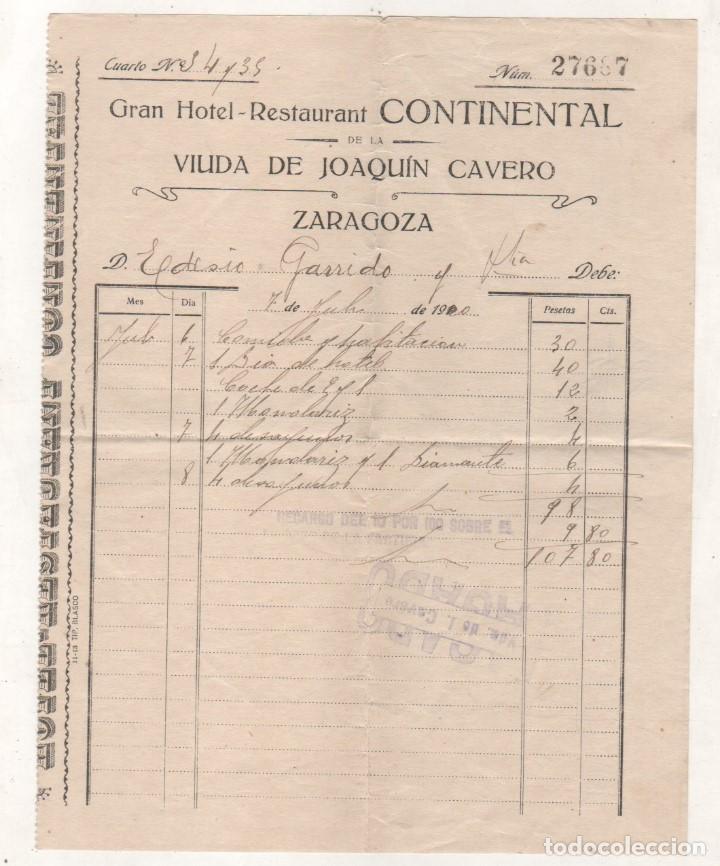 Cuarto N.º 34 y 35.
Núm. 27687
Gran Hotel-Restaurant CONTINENTAL
DE LA
VIUDA DE JOAQUÍN CAVERO
ZARAGOZA
D. Edesio Garrido y Debe:
7 de Julio de 1920
Mes Día Pesetas Cts.
Julio 6 Comida y habitacion 30
7 1 Dia de hotel 40
Coche de 2 y 1 12
1 Mondariz 2
7 4 desayunos 4
1 Mondariz y 1 Diamante 6
8 4 desayunos 4
98
RECARGO DEL 10 POR 100 SOBRE EL
9 80
107 80
Vda. de J. Cavero
11-18 TIP. BLASCO
todocoleccion